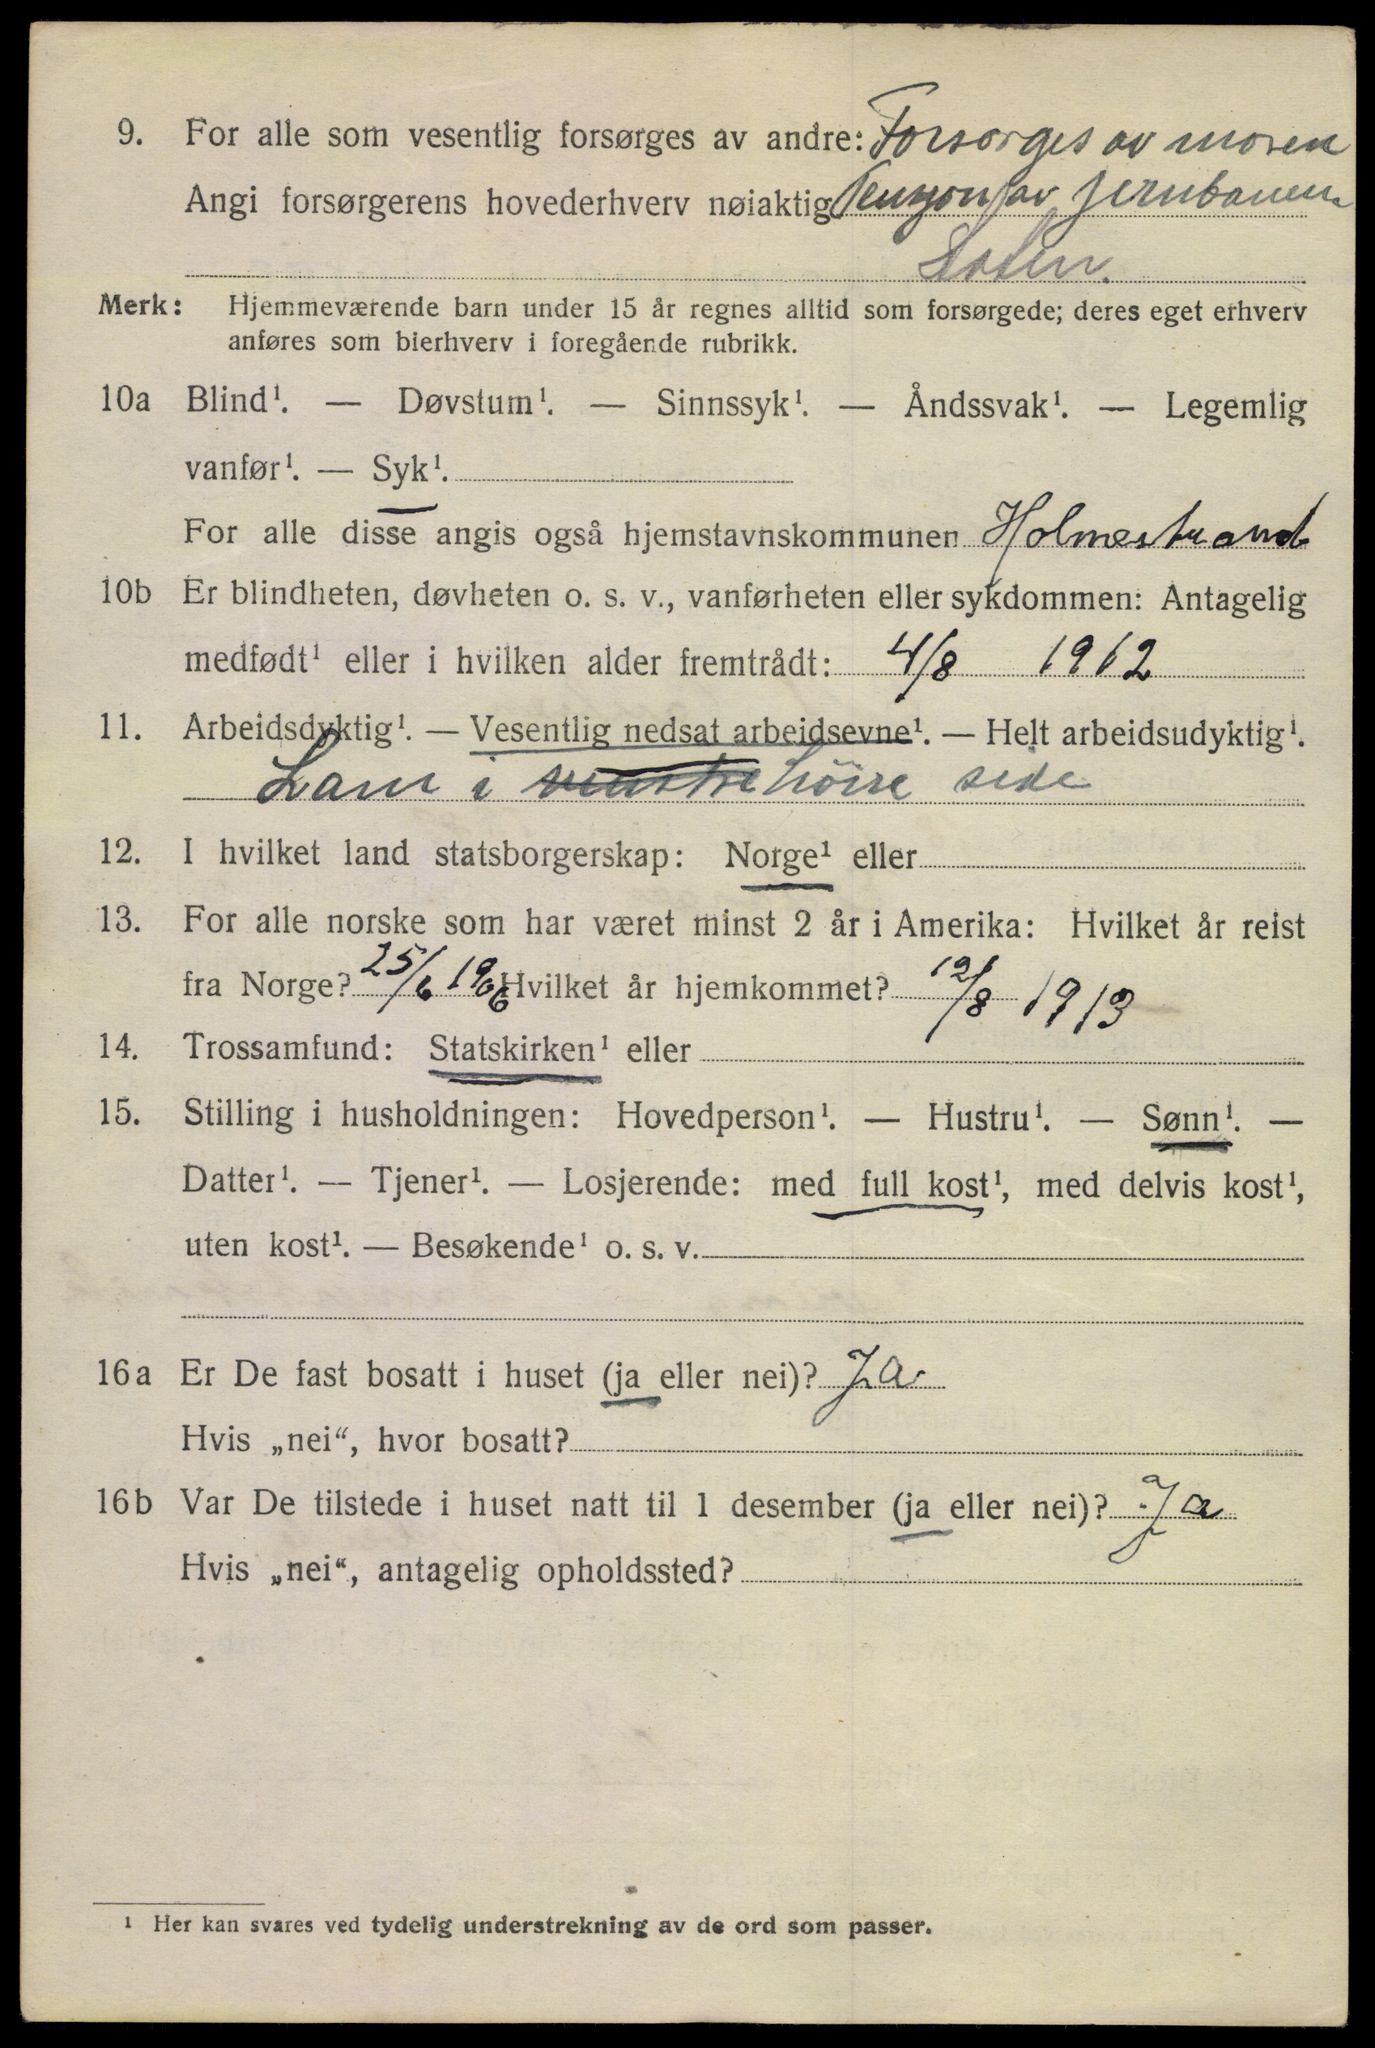 9. For alle som vesentlig forsørges av andre: Forsorges av moren
Angi forsørgerens hovederhverv nøiaktig Pensjon av jernbanen
Merk: Hjemmeværende barn under 15 år regnes alltid som forsørgede; deres eget erhverv
anføres som bierhverv i foregående rubrikk.
10a Blind¹. — Døvstum¹. — Sinnssyk¹. — Åndssvak¹. — Legemlig
vanfør¹. — Syk¹.
For alle disse angis også hjemstavnskommunen Holmestrand
10b Er blindheten, døvheten o. s. v., vanførheten eller sykdommen: Antagelig
medfødt¹ eller i hvilken alder fremtrådt: 4/8 1912
11. Arbeidsdyktig¹. — Vesentlig nedsat arbeidsevne¹. — Helt arbeidsudyktig¹.
Lam i venstre höire side
12. I hvilket land statsborgerskap: Norge¹ eller
13. For alle norske som har været minst 2 år i Amerika: Hvilket år reist
fra Norge? 25/6 1906 Hvilket år hjemkommet? 12/8 1913
14. Trossamfund: Statskirken¹ eller
15. Stilling i husholdningen: Hovedperson¹. — Hustru¹. — Sønn¹. —
Datter¹. — Tjener¹. — Losjerende: med full kost¹, med delvis kost¹,
uten kost¹. — Besøkende¹ o. s. v.
16a Er De fast bosatt i huset (ja eller nei)? Ja
Hvis „nei“, hvor bosatt?
16b Var De tilstede i huset natt til 1 desember (ja eller nei)? Ja
Hvis „nei“, antagelig opholdssted?
¹ Her kan svares ved tydelig understrekning av de ord som passer.